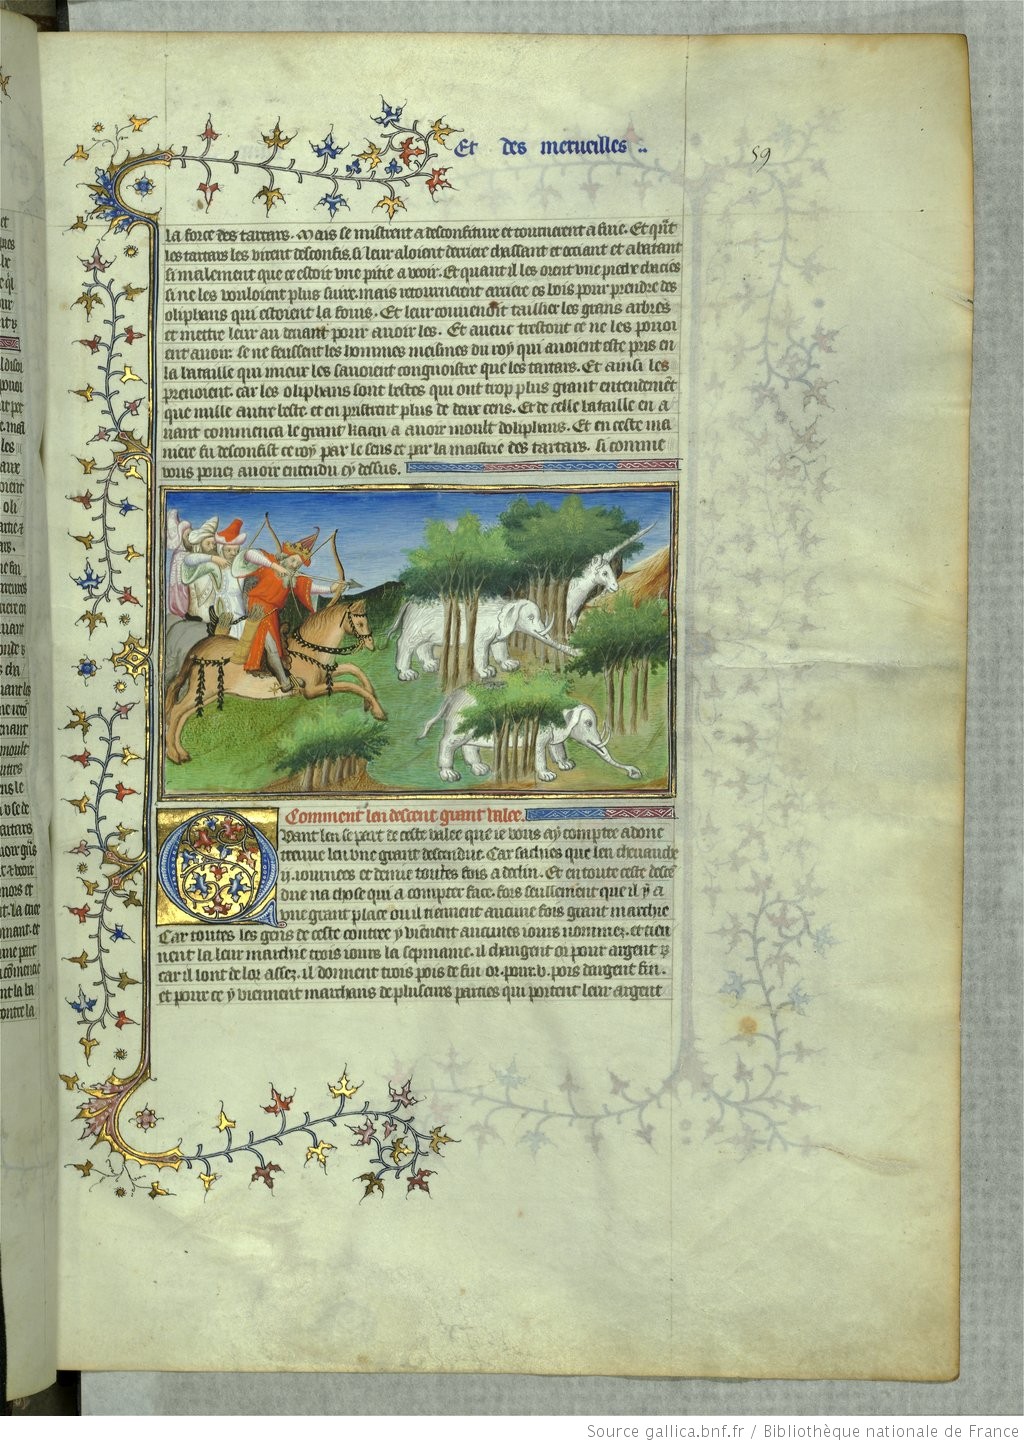 Et des merueilles ..
59
la force des tartars. Mais se mistrent a desconfiture et tournerent a fuie. Et qn̄t
les tartars les virent desconfis. si leur aloient derriere chassant et occiant et abatant
si malement que ce estoit vne pitie a veoir. Et quant il les orent vne piece chacies
si ne les vouloient plus suiure. mais retournerent arriere es bois pour prendre des
oliphans qui estoient la fouis. Et leur conuenoit taillier les grans arbres
et mettre leur au deuant pour auoir les. Et auec trestout ce ne les pouoi
ent auoir. se ne feussent les hommes meismes du roy qui auoient este pris en
la bataille qui mieux les sauoient congnoistre que les tartars. Et ainsi les
prenoient. car les oliphans sont bestes qui ont trop plus grant entendemēt
que nulle autre beste. et en pristrent plus de deux cens. Et de celle bataille en a
uant commenca le grant kaan a auoir moult doliphans. Et en ceste ma
niere fu desconfist ce roy par le sens et par la maistrie des tartars. si comme
vous pouez auoir entendu cy dessus.
Comment len descent grant valee.
Quant len se part de ceste valee que ie vous ay comptee adonc
treuue len vne grant descendue. Car sachies que len cheuauche
.ij. iournees et demie toutes fois a declin. Et en toute ceste descē
due na chose qui a compter face. fors seullement que il y a
vne grant place ou il tiennent aucune fois grant marchie
Car toutes les gens de ceste contree y vienent aucunes iours nommez. et tien
nent la leur marchie trois iours la sepmaine. il changent or pour argent
car il sont de lor assez. il donnent trois pois de fin or. pour .v. pois dargent fin.
et pour ce y viennent marchans de pluseurs parties qui portent leur argent
Source gallica.bnf.fr / Bibliothèque nationale de France